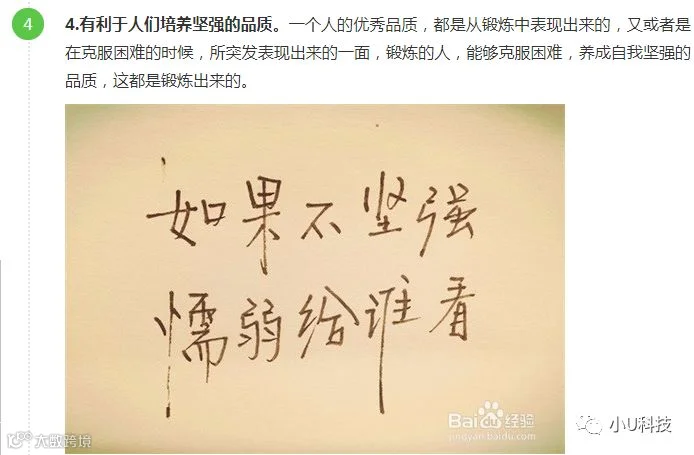 4
4.有利于人们培养坚强的品质。一个人的优秀品质，都是从锻炼中表现出来的，又或者是
在克服困难的时候，所突发表现出来的一面，锻炼的人，能够克服困难，养成自我坚强的
品质，这都是锻炼出来的。
如果不坚强
懦弱给谁看
Baidu经验
jingyan.baidu.com
小U科技
大数跨境